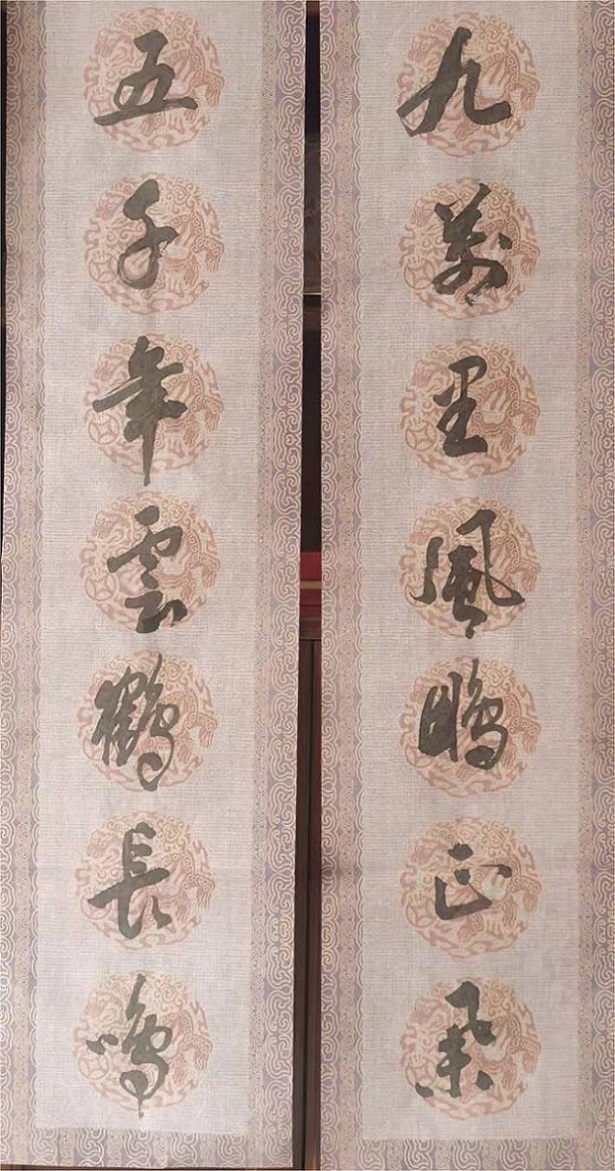 九萬里風鵬正舉
五千年雲鶴長鳴